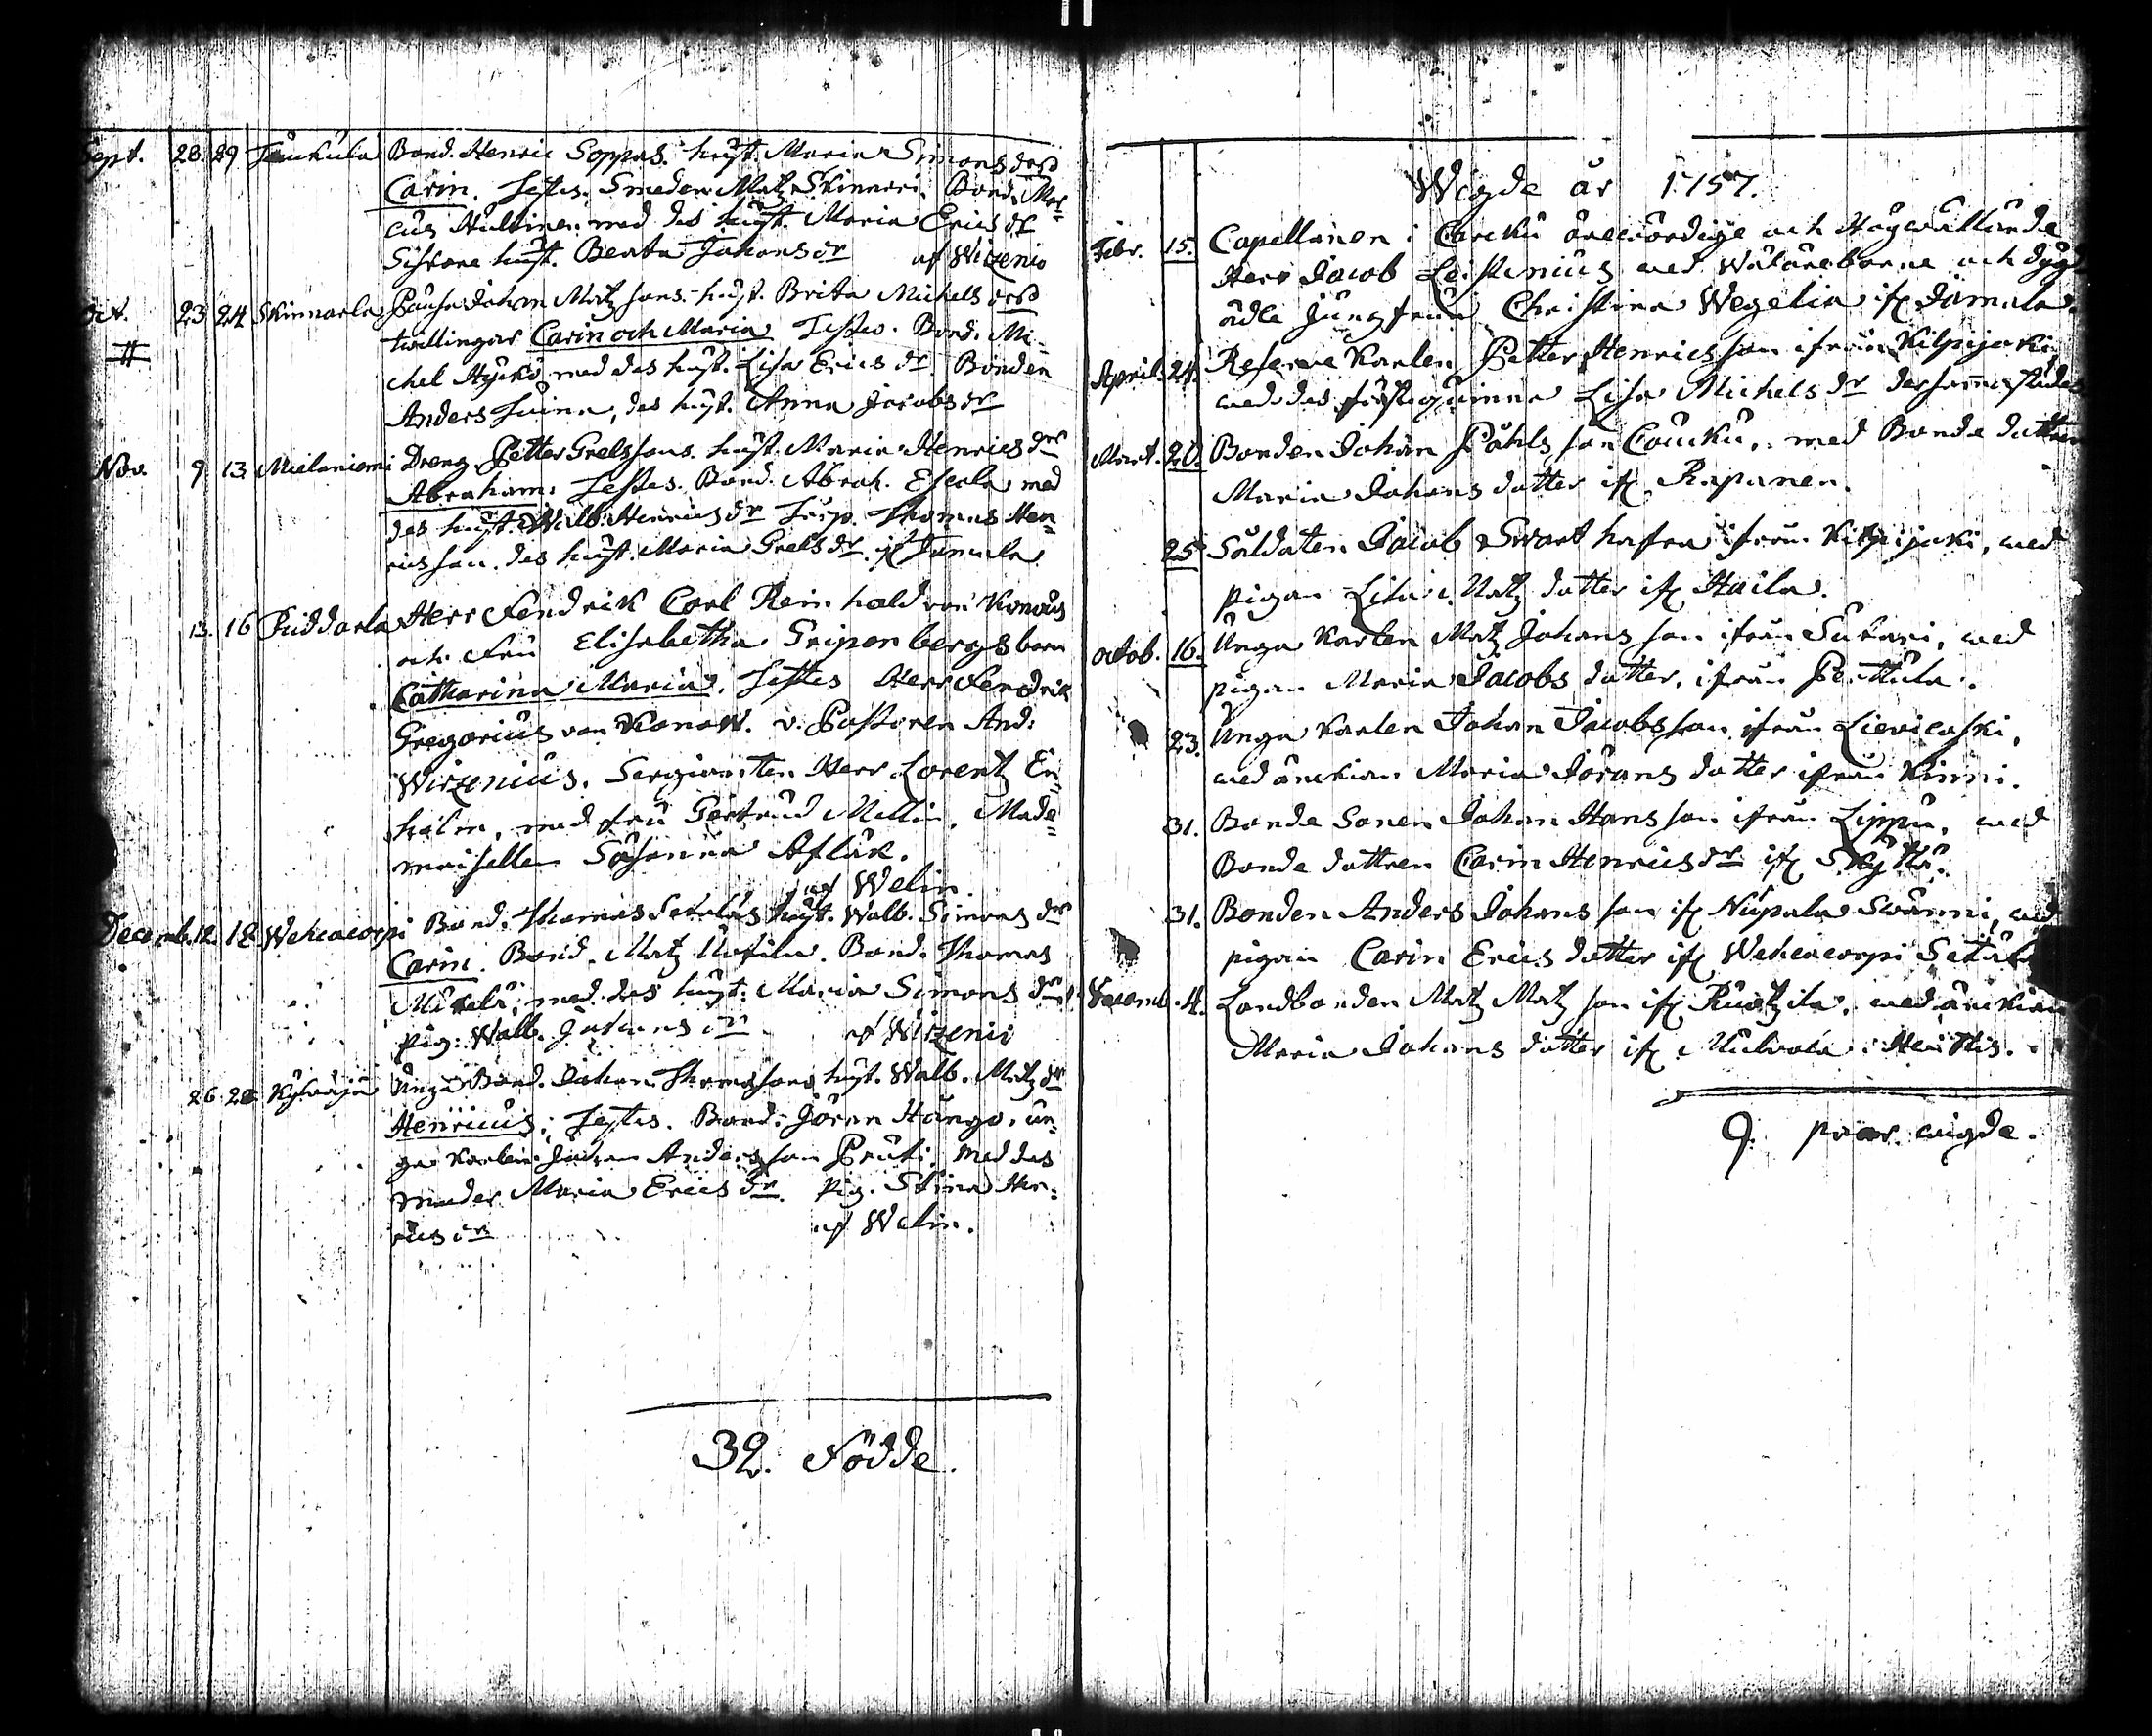 Sept. 28. 29 Jaukula Bond. Henric Soppas. hust. Maria Simons dr
Carin. Testes. Smeden Matz Skinnari. Bond. Mar=
cus Hultinen med des hust. Maria Erics dr
hust. Beata Johans dr af Wirzenio
Oct. 23 24 Skinnarla Johan Matz sons hust. Brita Michels dr
twillingar Carin och Maria Testes. Bond. Mi-
chel Hyckö med des hust. Lisa Erics dr Bonden
Anders des hust. Anna Jacobs dr
Nov. 9 13 Mielaniemi Dreng Petter Grels sons hust. Maria Henrics dr
Abraham. Testes. Bond. Abrah. Escola med
des hust. Walb. Henrics dr Torp. Thomas Hen=
rics son des hust. Maria Grels dr if Jämula
13. 16 Puddarla Herr Fendrik Carl Reinhold von Konow
och Fru Elisabetha Gripenbergs barn
Catharina Maria. Testes Herr Fendrik
Gregorius von Konow. v. Pastoren And:
Wirzenius. Sergianten Herr Lorentz En=
holm, med fru Gertrud Mellin. Made=
moisellen Susanna Aflük.
af Welin.
Decemb. 12. 18. Wehcacorpi Bond. Thomas Setäläs hust. Walb. Simons dr
Carin. Bond. Matz Uotila. Bond. Thomas
Mickelä, med des hust. Maria Simons dr
pig. Walb. Johans dr af Wirzenii
26. 28 Unga Bond. Johan Thomas sons hust. Walb. Matz dr
Henricus. Testes. Bond. Jören Hango. un=
ga karlen Johan Anders son Pruki. med des
moder Maria Erics dr. pig. Stina Hen=
rics dr af Welin.
32. Födde.
Wigde år 1757.
Febr. 15. Capellanen i Carcku ärewördige och Högwällärde
Herr Jacob Leistenius med Wäläreborne och dygd
ädle Jungfrun Christina Wegelia if Jämula.
April. 24. Reserve Karlen Petter Henrics son ifrån Kilpijoki
med des fästeqwinna Lisa Michels dr dersammastädes
Mart. 20. Bonden Johan Påhls son Coucku, med Bonde dottren
Maria Johans dotter if Rapanen.
25. Soldaten Jacob Swart hafra ifrån Kilpijoki, med
pigan Lisa Matz dotter if Haila.
Octob. 16. Unga Karlen Matz Johans son ifrån Sukari, med
pigan Maria Jacobs dotter, ifrån Penttula.
23. Unga karlen Johan Jacobs son ifrån Lievilaski,
med änckian Maria Jörans dotter ifrån Kinni.
31. Bonde Sonen Johan Hans son ifrån Lippu, med
Bonde dottren Carin Henrics dr if Skyttä.
31. Bonden Anders Johans son if Nupala Swänni, med
pigan Carin Erics dotter if Wehcacorpi Setälä
Decemb. 4. Landbonden Matz Matz son if Ruotzila, med änckian
Maria Johans dotter if Huittis.
9. paar wigde.